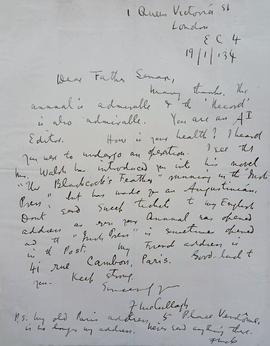 1 Queen Victoria St
London
E C 4
19/1/34
Dear Father Senan,
Many thanks. The
annual is admirable & the 'Record'
is also admirable. You are an A1
Editor. How is your health? I heard
you were to undergo an operation. I see that
Mr. Walsh has introduced you into his novel
"The Blackcock's Feather" running in the "Irish
Press", but has made you an Augustinian.
Dont send Sweep ticket to my English
address as even your Annual was opened
and the "Irish Press" is sometimes opened
in the Post. My French address is
41 rue Cambon, Paris. Good luck to
you. Keep strong.
Sincerely yrs
F McCullagh
P.S. My old Paris address, 5 Place Vendôme,
is no longer my address. Never send anything there.